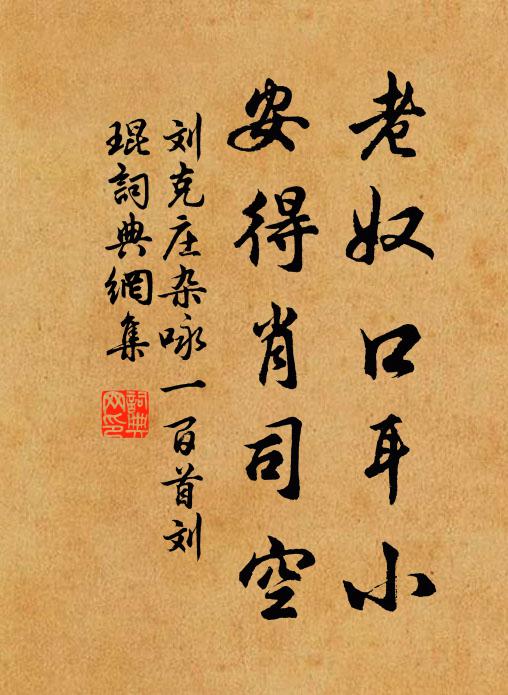 老奴口耳小
安得肖司空
刘克庄杂咏一百首刘
琨詞典網集
詞典
网印